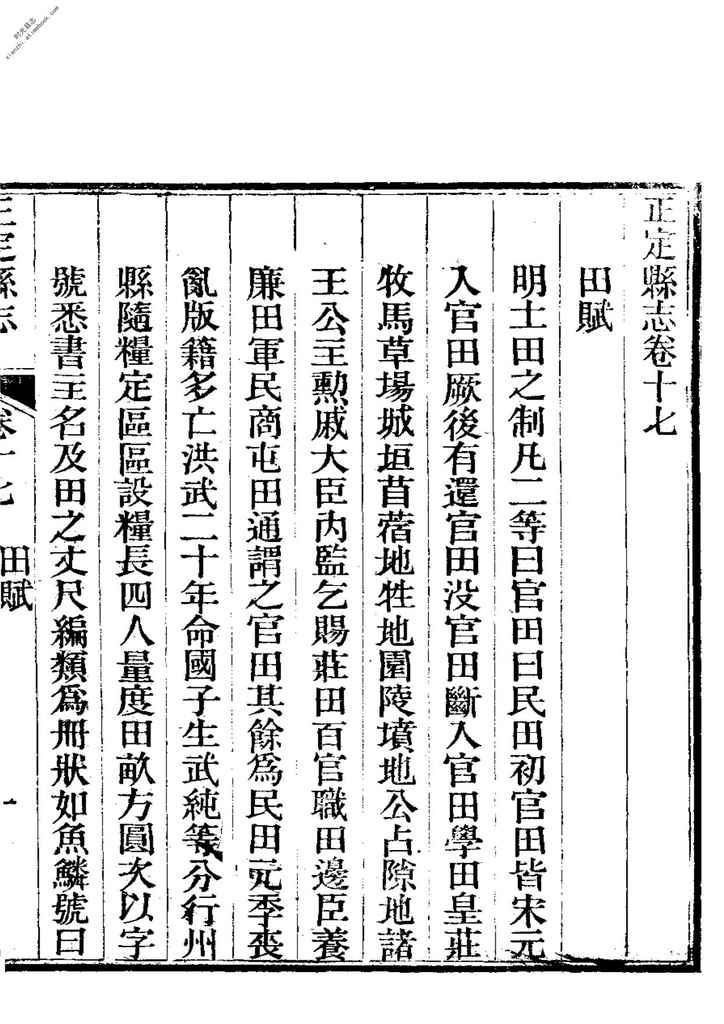 正定縣志卷十七
田賦
明土田之制凡二等曰官田曰民田初官田皆宋元
入官田厥後有還官田没官田斷入官田學田皇莊
牧馬草場城垣苜蓿地牲地園陵墳地公占隙地諸
王公主勳戚大臣内監乞賜莊田百官職田邊臣養
廉田軍民商屯田通謂之官田其餘為民田元季喪
亂版籍多亡洪武二十年命國子生武純等分行州
縣隨糧定區區設糧長四人量度田畝方圓次以字
號悉書主名及田之丈尺編類為冊狀如魚鱗號曰
正定縣志 卷十七 田賦 一
时光县志
xianzhi.atimebook.com